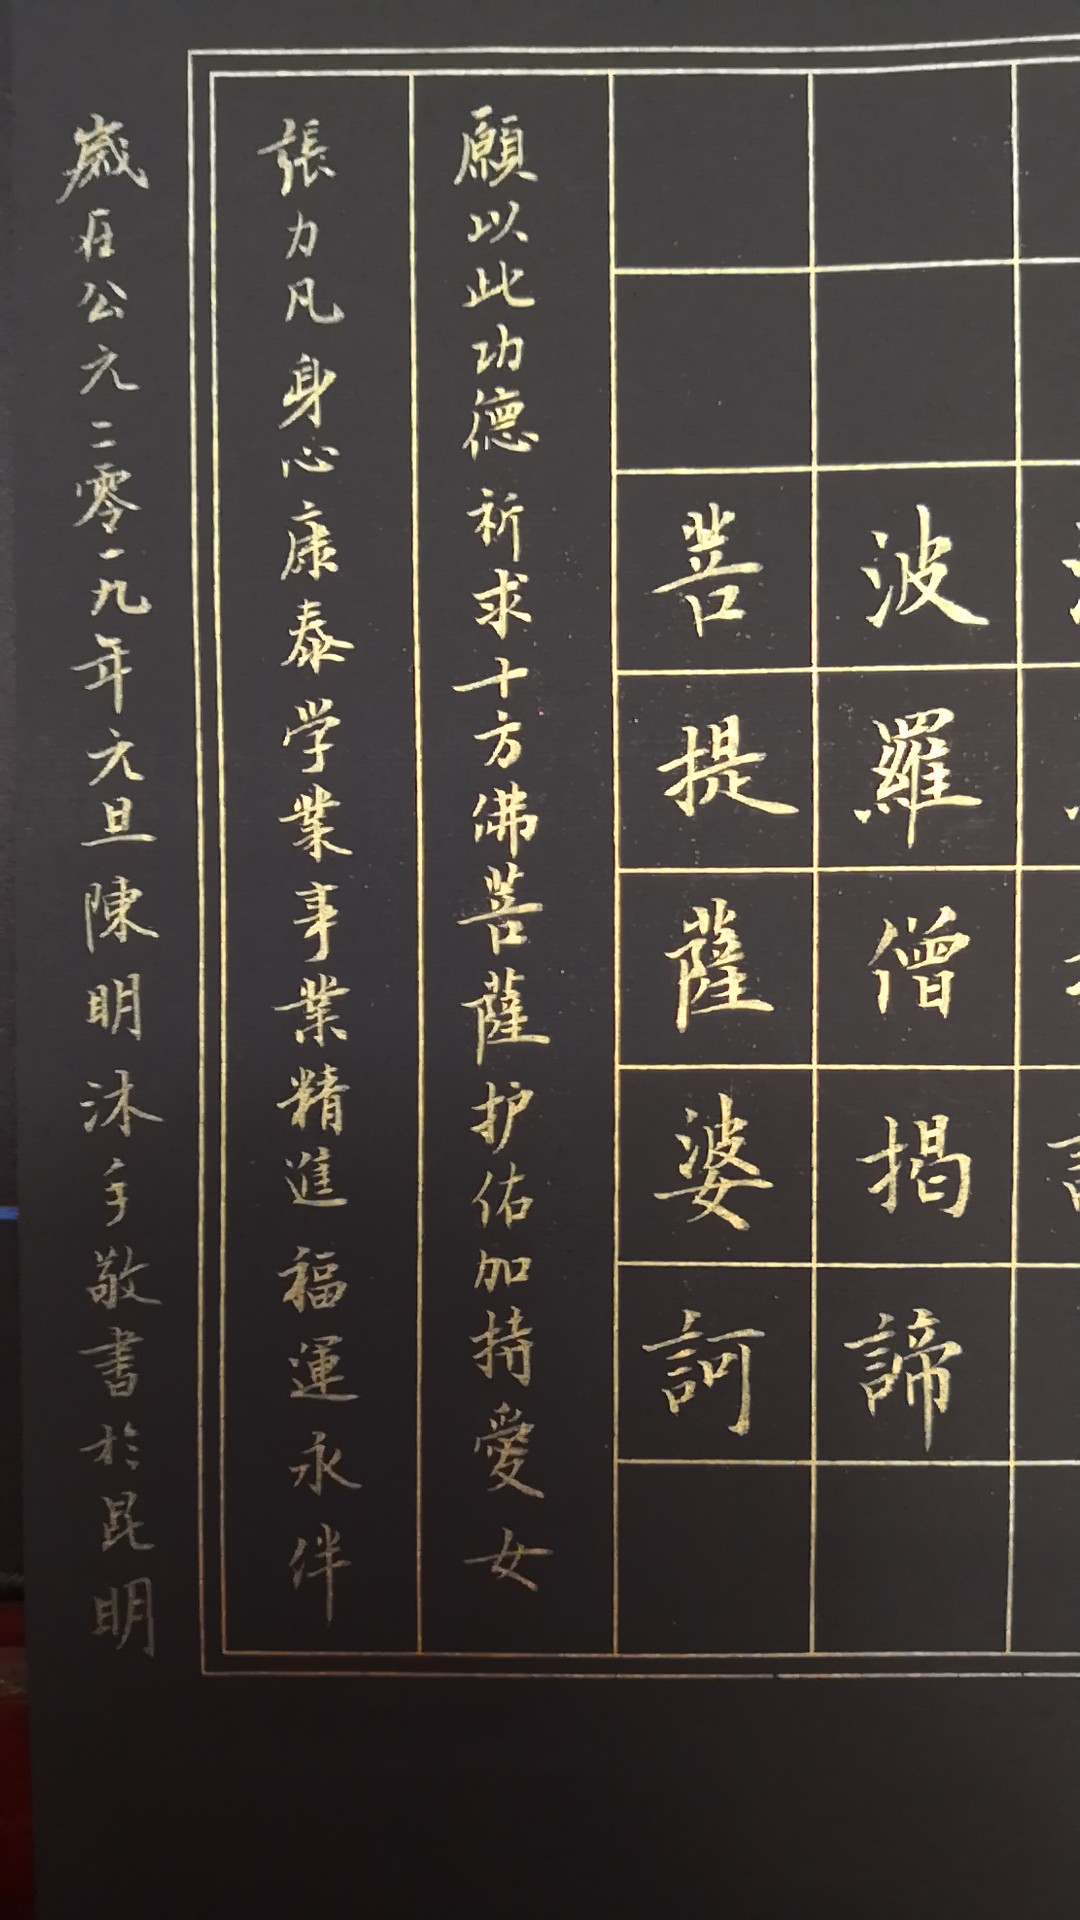 波羅僧揭諦
菩提薩婆訶
願以此功德祈求十方佛菩薩护佑加持愛女
張力凡身心康泰学業事業精進福運永伴
歲在公元二零一九年元旦陳明沐手敬書於昆明